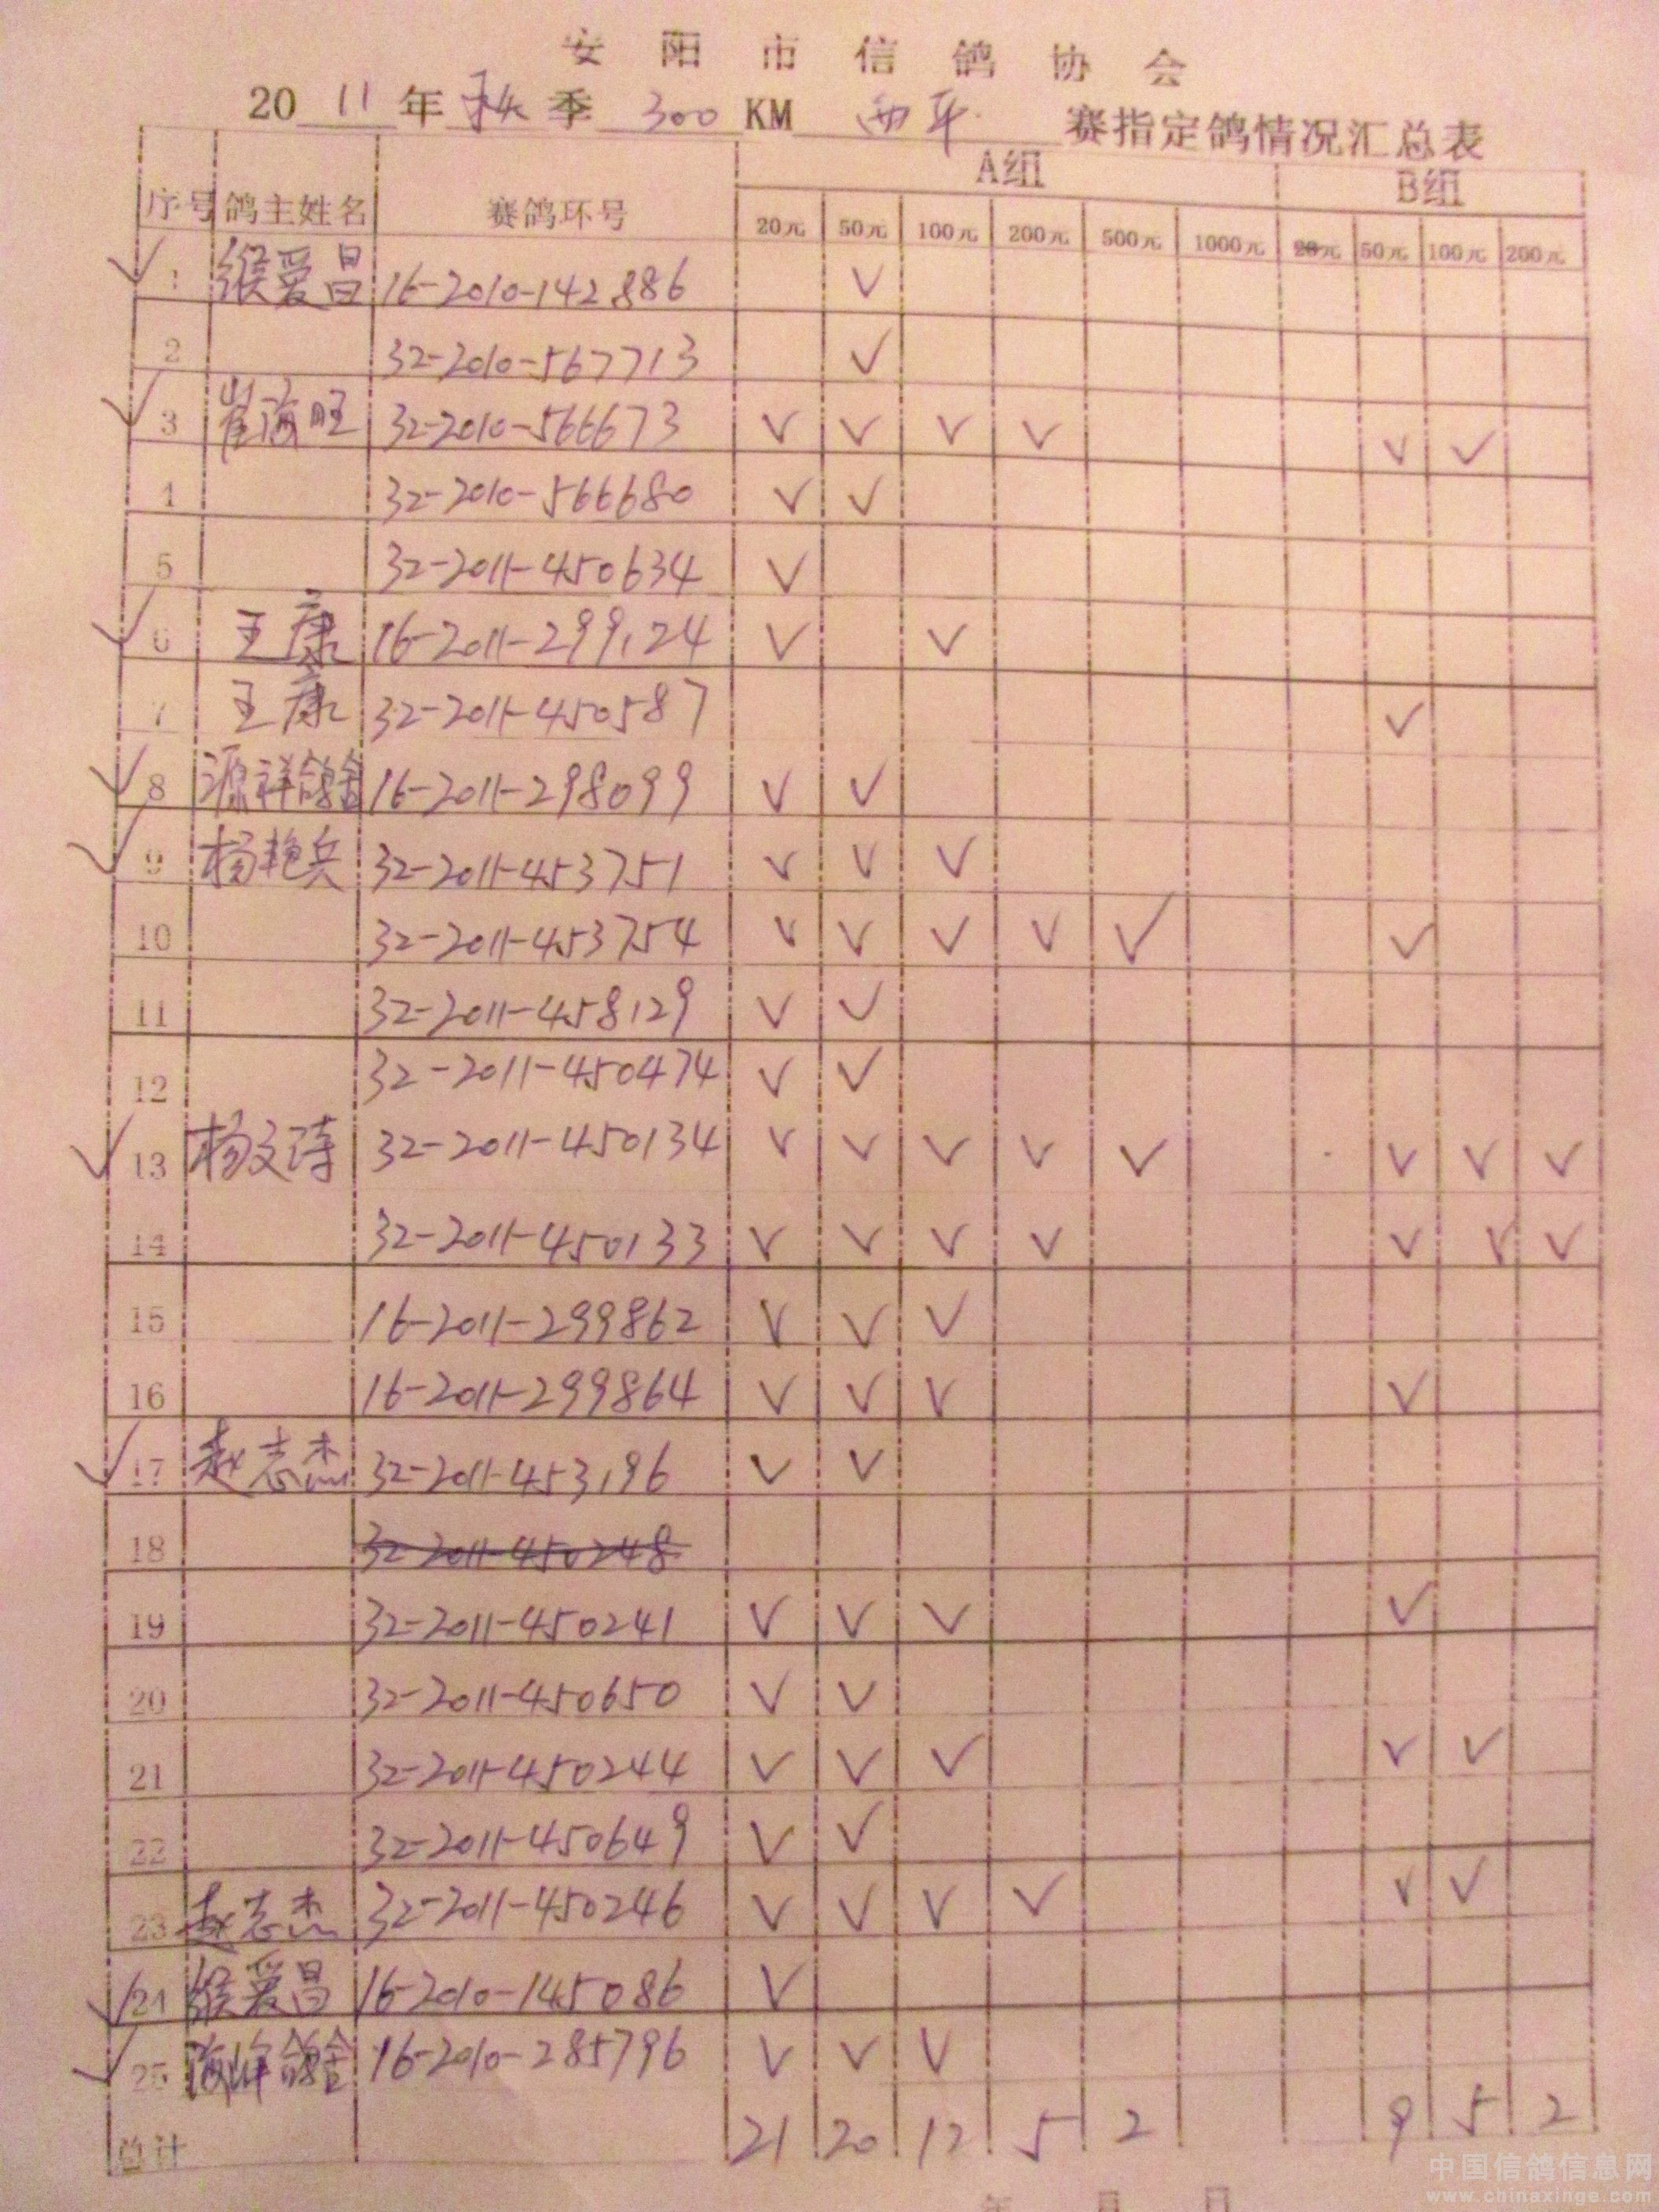 安阳市信鸽协会
2011年秋季300KM西平赛指定鸽情况汇总表
序号 鸽主姓名 赛鸽环号 A组 B组
20元 50元 100元 200元 500元 1000元 20元 50元 100元 200元
✓ 1 缑爱昌 16-2010-142886 ✓
2 32-2010-567713 ✓
✓ 3 崔海旺 32-2010-566673 ✓ ✓ ✓ ✓ ✓ ✓
4 32-2010-566680 ✓ ✓
5 32-2011-450634 ✓
✓ 6 王康 16-2011-299124 ✓ ✓
7 王康 32-2011-450587 ✓
✓ 8 源祥鸽舍 16-2011-298099 ✓ ✓
✓ 9 杨艳兵 32-2011-453751 ✓ ✓ ✓
10 32-2011-453754 ✓ ✓ ✓ ✓ ✓ ✓
11 32-2011-458129 ✓ ✓
12 32-2011-450474 ✓ ✓
✓ 13 杨文琦 32-2011-450134 ✓ ✓ ✓ ✓ ✓ ✓ ✓ ✓
14 32-2011-450133 ✓ ✓ ✓ ✓ ✓ ✓ ✓
15 16-2011-299862 ✓ ✓ ✓
16 16-2011-299864 ✓ ✓ ✓ ✓
✓ 17 赵志杰 32-2011-453196 ✓ ✓
18 32-2011-450248
19 32-2011-450241 ✓ ✓ ✓ ✓
20 32-2011-450650 ✓ ✓
21 32-2011-450244 ✓ ✓ ✓ ✓ ✓
22 32-2011-450649 ✓ ✓
23 赵志杰 32-2011-450246 ✓ ✓ ✓ ✓ ✓ ✓
✓ 24 缑爱昌 16-2010-145086 ✓
✓ 25 鸽舍 16-2010-285796 ✓ ✓ ✓
总计 21 20 12 5 2 9 5 2
年 月 日
中国信鸽信息网
www.chinaxinge.com